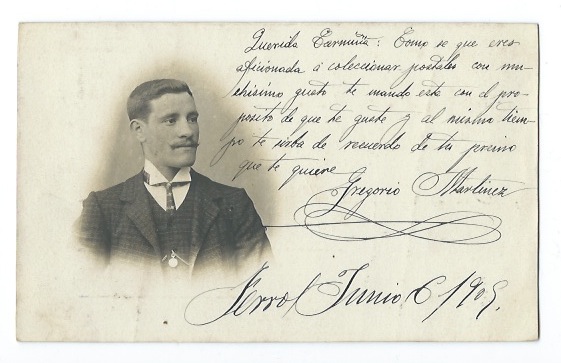 Querida Carmiña: Como se que eres
aficionada á coleccionar postales con mu-
chisimo gusto te mando esta con el pro-
posito de que te guste y al mismo tiem-
po te sirba de recuerdo de tu primo
que te quiere
Gregorio Martinez
Ferrol Junio 6/1905.